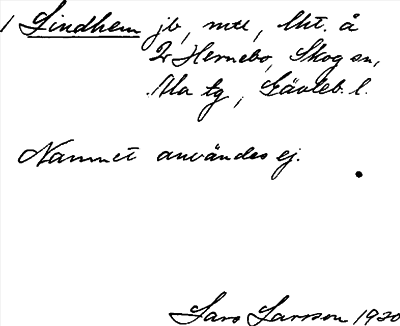 1 Lindhem jb, mtl, lht. å
2/2 Hemebo, Skog sn,
Ala tg, Gävleb. l.
Namnet användes ej.
Lars Larsson 1930